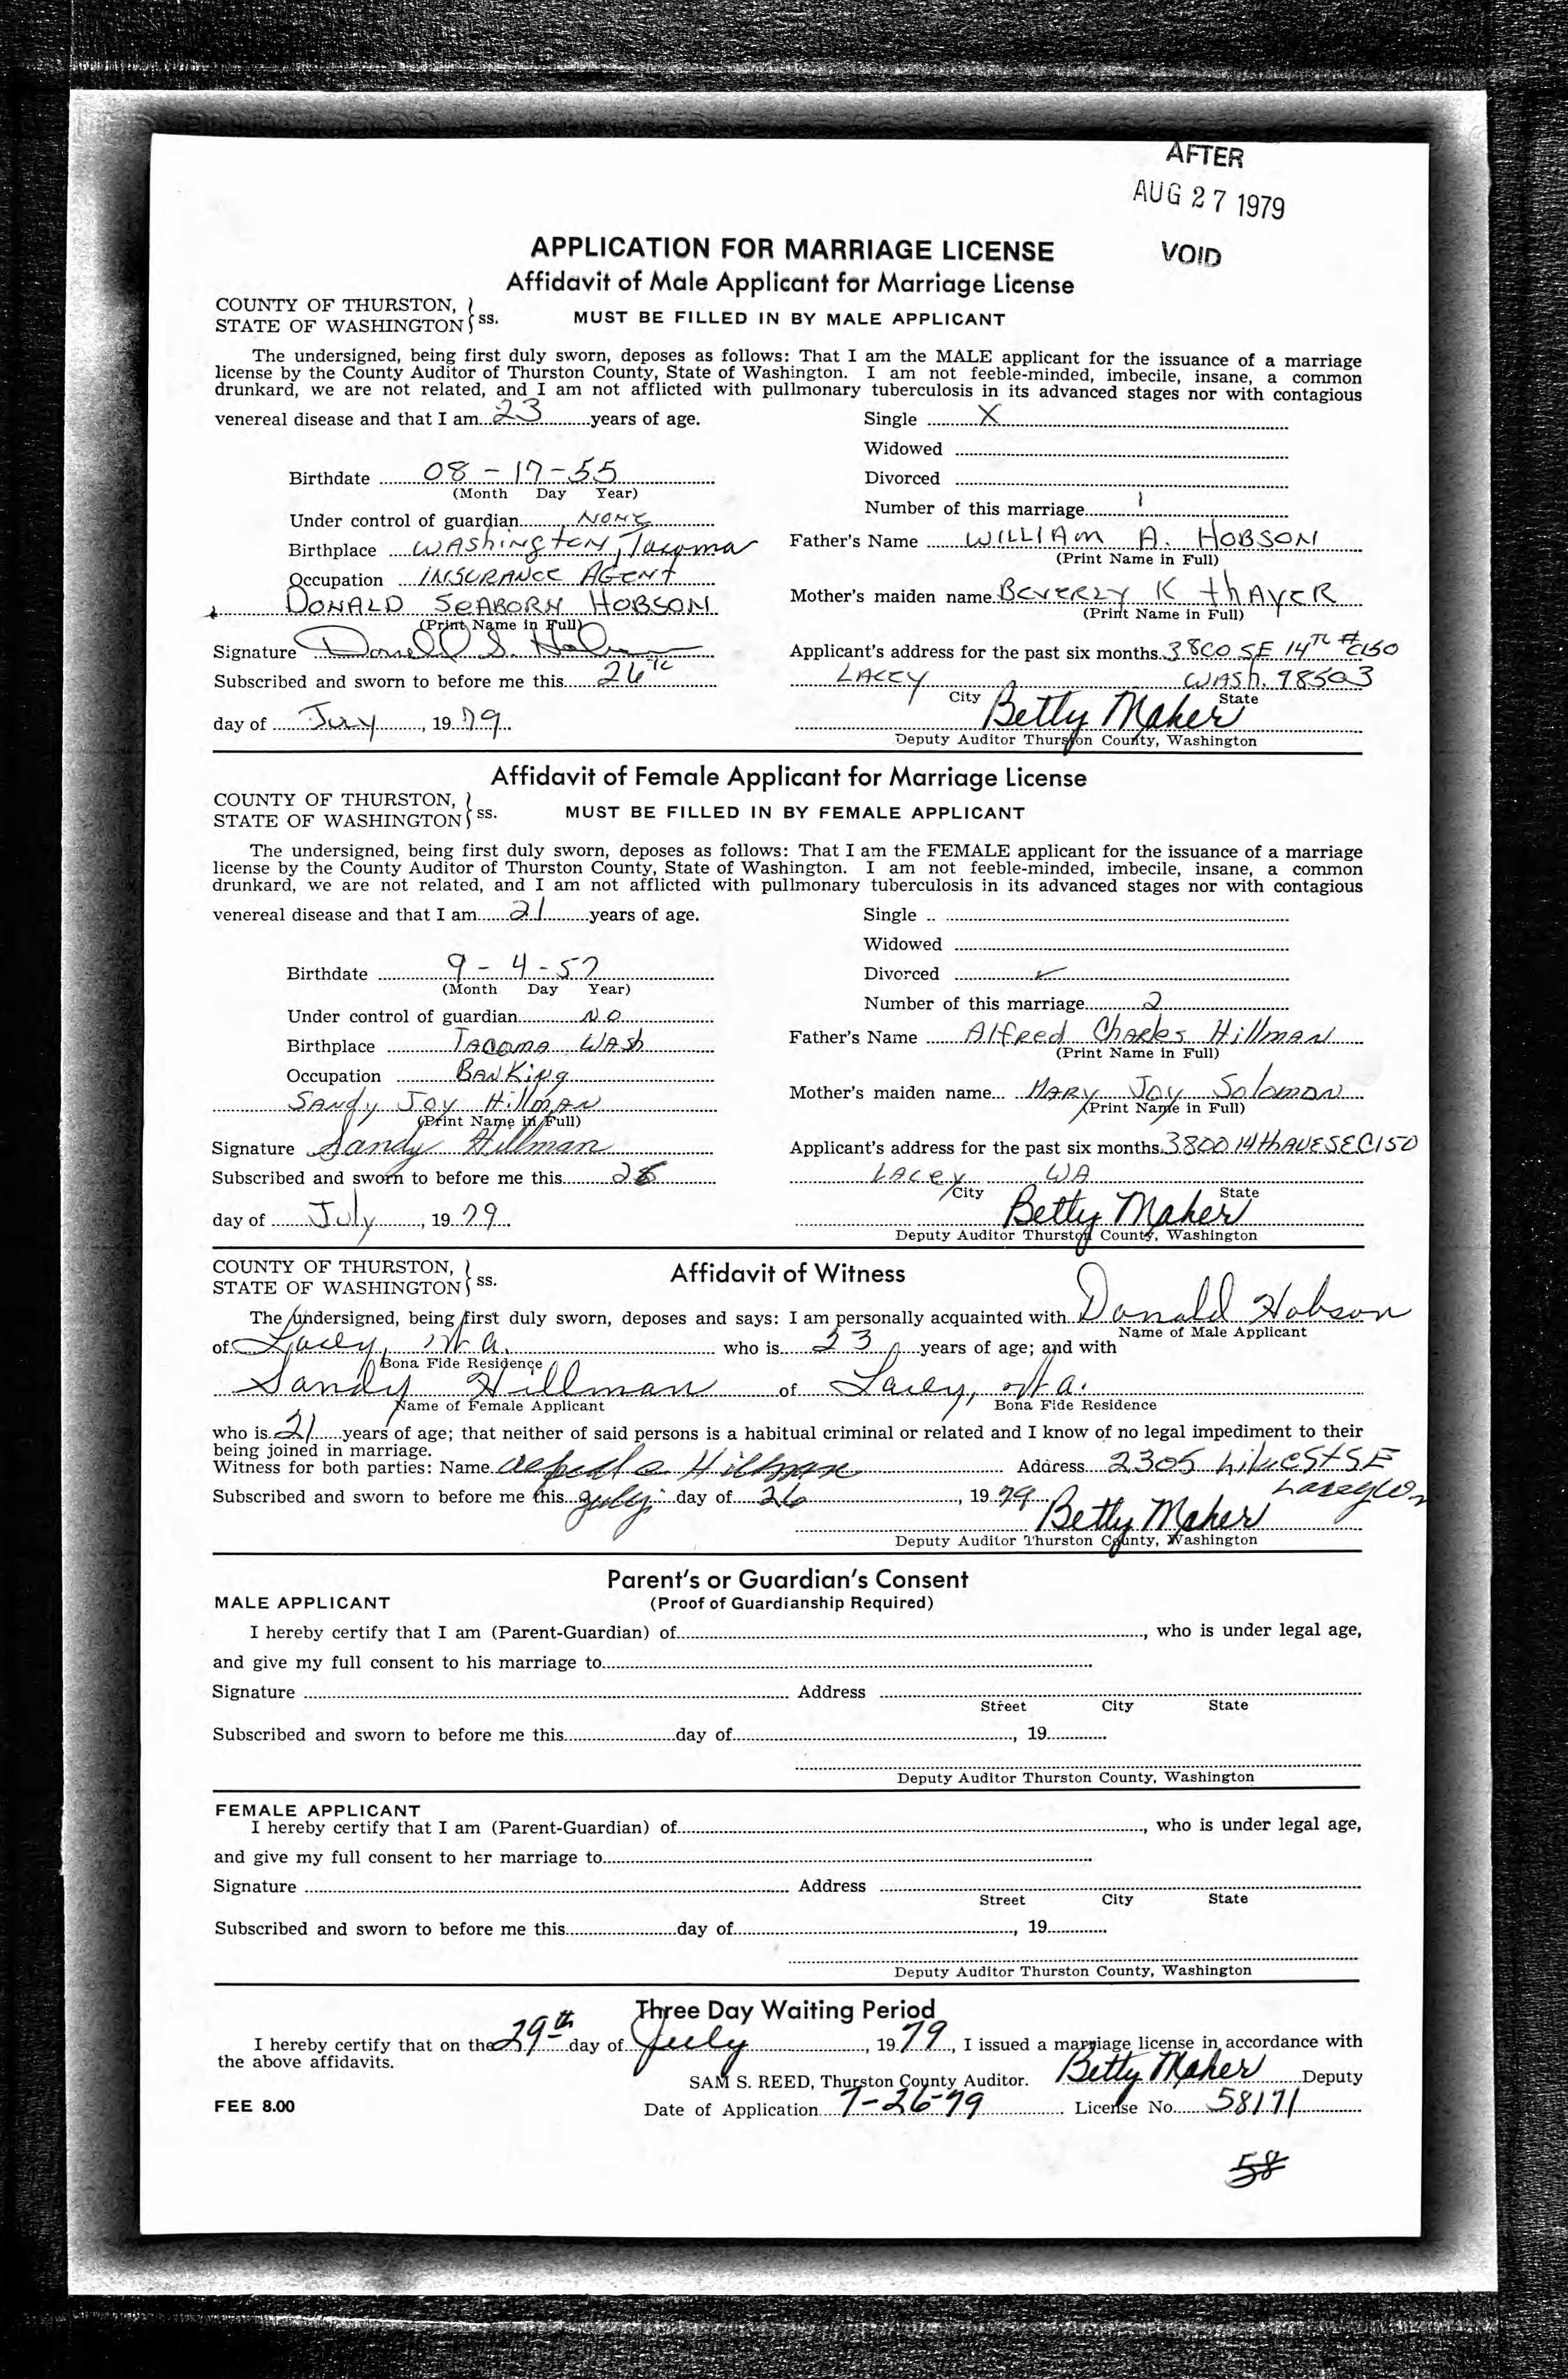 AFTER
AUG 27 1979
VOID
APPLICATION FOR MARRIAGE LICENSE
Affidavit of Male Applicant for Marriage License
COUNTY OF THURSTON,
STATE OF WASHINGTON } ss.
MUST BE FILLED IN BY MALE APPLICANT
The undersigned, being first duly sworn, deposes as follows: That I am the MALE applicant for the issuance of a marriage
license by the County Auditor of Thurston County, State of Washington. I am not feeble-minded, imbecile, insane, a common
drunkard, we are not related, and I am not afflicted with pulmonary tuberculosis in its advanced stages nor with contagious
venereal disease and that I am 23 years of age.
Single X
Widowed
Birthdate 08-17-55
(Month Day Year)
Divorced
Number of this marriage 1
Under control of guardian NONE
Birthplace WAShINGTON, Tacoma
Father's Name WILLIAM A. HOBSON
(Print Name in Full)
Occupation INSURANCE AGENT
DONALD SEABORN HOBSON
(Print Name in Full)
Mother's maiden name BEVERLY K thAYER
(Print Name in Full)
Signature Donald S. Hobson
Applicant's address for the past six months 3800 SE 14TH #C150
Subscribed and sworn to before me this 26th
LACEY WASh. 98503
City State
day of July, 1979
Betty Maher
Deputy Auditor Thurston County, Washington
Affidavit of Female Applicant for Marriage License
COUNTY OF THURSTON,
STATE OF WASHINGTON } ss.
MUST BE FILLED IN BY FEMALE APPLICANT
The undersigned, being first duly sworn, deposes as follows: That I am the FEMALE applicant for the issuance of a marriage
license by the County Auditor of Thurston County, State of Washington. I am not feeble-minded, imbecile, insane, a common
drunkard, we are not related, and I am not afflicted with pulmonary tuberculosis in its advanced stages nor with contagious
venereal disease and that I am 21 years of age.
Single
Widowed
Birthdate 9-4-57
(Month Day Year)
Divorced ✓
Number of this marriage 2
Under control of guardian NO
Birthplace TACOMA WASh
Father's Name Alfred Charles Hillman
(Print Name in Full)
Occupation BANKing
SANdy JOY HillmAN
(Print Name in Full)
Mother's maiden name MARY JOY Solomon
(Print Name in Full)
Signature Sandy Hillman
Applicant's address for the past six months 3800 14th AVE SE C150
Subscribed and sworn to before me this 26
LACEY WA
City State
day of July, 1979
Betty Maher
Deputy Auditor Thurston County, Washington
COUNTY OF THURSTON,
STATE OF WASHINGTON } ss.
Affidavit of Witness
The undersigned, being first duly sworn, deposes and says: I am personally acquainted with Donald Hobson
Name of Male Applicant
of Lacey, Wa. who is 23 years of age; and with
Bona Fide Residence
Sandy Hillman of Lacey, Wa.
Name of Female Applicant Bona Fide Residence
who is 21 years of age; that neither of said persons is a habitual criminal or related and I know of no legal impediment to their
being joined in marriage.
Witness for both parties: Name Alfred C. Hillman Address 2305 St SE
Lacey Wn
Subscribed and sworn to before me this July day of 26, 1979
Betty Maher
Deputy Auditor Thurston County, Washington
Parent's or Guardian's Consent
MALE APPLICANT
(Proof of Guardianship Required)
I hereby certify that I am (Parent-Guardian) of, who is under legal age,
and give my full consent to his marriage to
Signature Address
Street City State
Subscribed and sworn to before me this day of, 19
Deputy Auditor Thurston County, Washington
FEMALE APPLICANT
I hereby certify that I am (Parent-Guardian) of, who is under legal age,
and give my full consent to her marriage to
Signature Address
Street City State
Subscribed and sworn to before me this day of, 19
Deputy Auditor Thurston County, Washington
Three Day Waiting Period
I hereby certify that on the 29th day of July, 1979, I issued a marriage license in accordance with
the above affidavits.
SAM S. REED, Thurston County Auditor. Betty Maher Deputy
FEE 8.00
Date of Application 7-26-79 License No. 58171
58